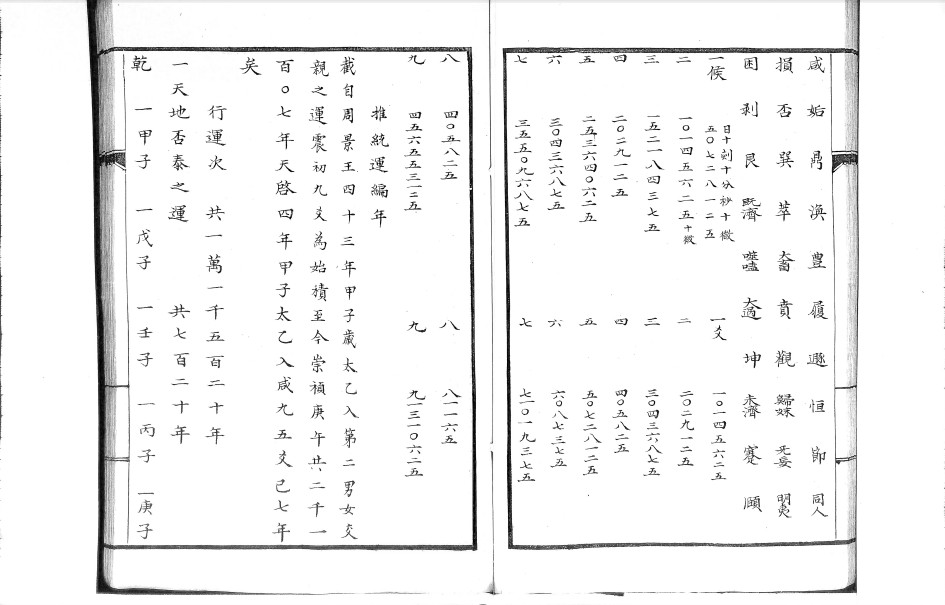 咸 姤 鼎 渙 豊 履 遯 恒 節 同人
損 否 巽 萃 大畜 賁 觀 歸妹 无妄 明夷
困 剥 艮 既濟 噬嗑 大過 坤 未濟 蹇 頤
一候 日十刻十分秒十微 五〇七二八一二五 一爻 一〇一四五六二五
二 一〇一四五六二五十微 二 二〇二九一二五
三 一五二一八四三七五 三 三〇四三六八七五
四 二〇二九一二五 四 四〇五八二五
五 二五三六四〇六二五 五 五〇七二八一二五
六 三〇四三六八七五 六 六〇八七三七五
七 三五五〇九六八七五 七 七一〇一九三七五
八 四〇五八二五 八 八一一六五
九 四五六五五三一二五 九 九一三一〇六二五
推統運編年
截自周景王四十三年甲子歲太乙入第二男女交
親之運震初九爻為始積至今崇禎庚午共二千一
百〇七年天啓四年甲子太乙入咸九五爻已七年
矣
行運次 共一萬一千五百二十年
一天地否泰之運 共七百二十年
乾 一甲子 一戊子 一壬子 一丙子 一庚子